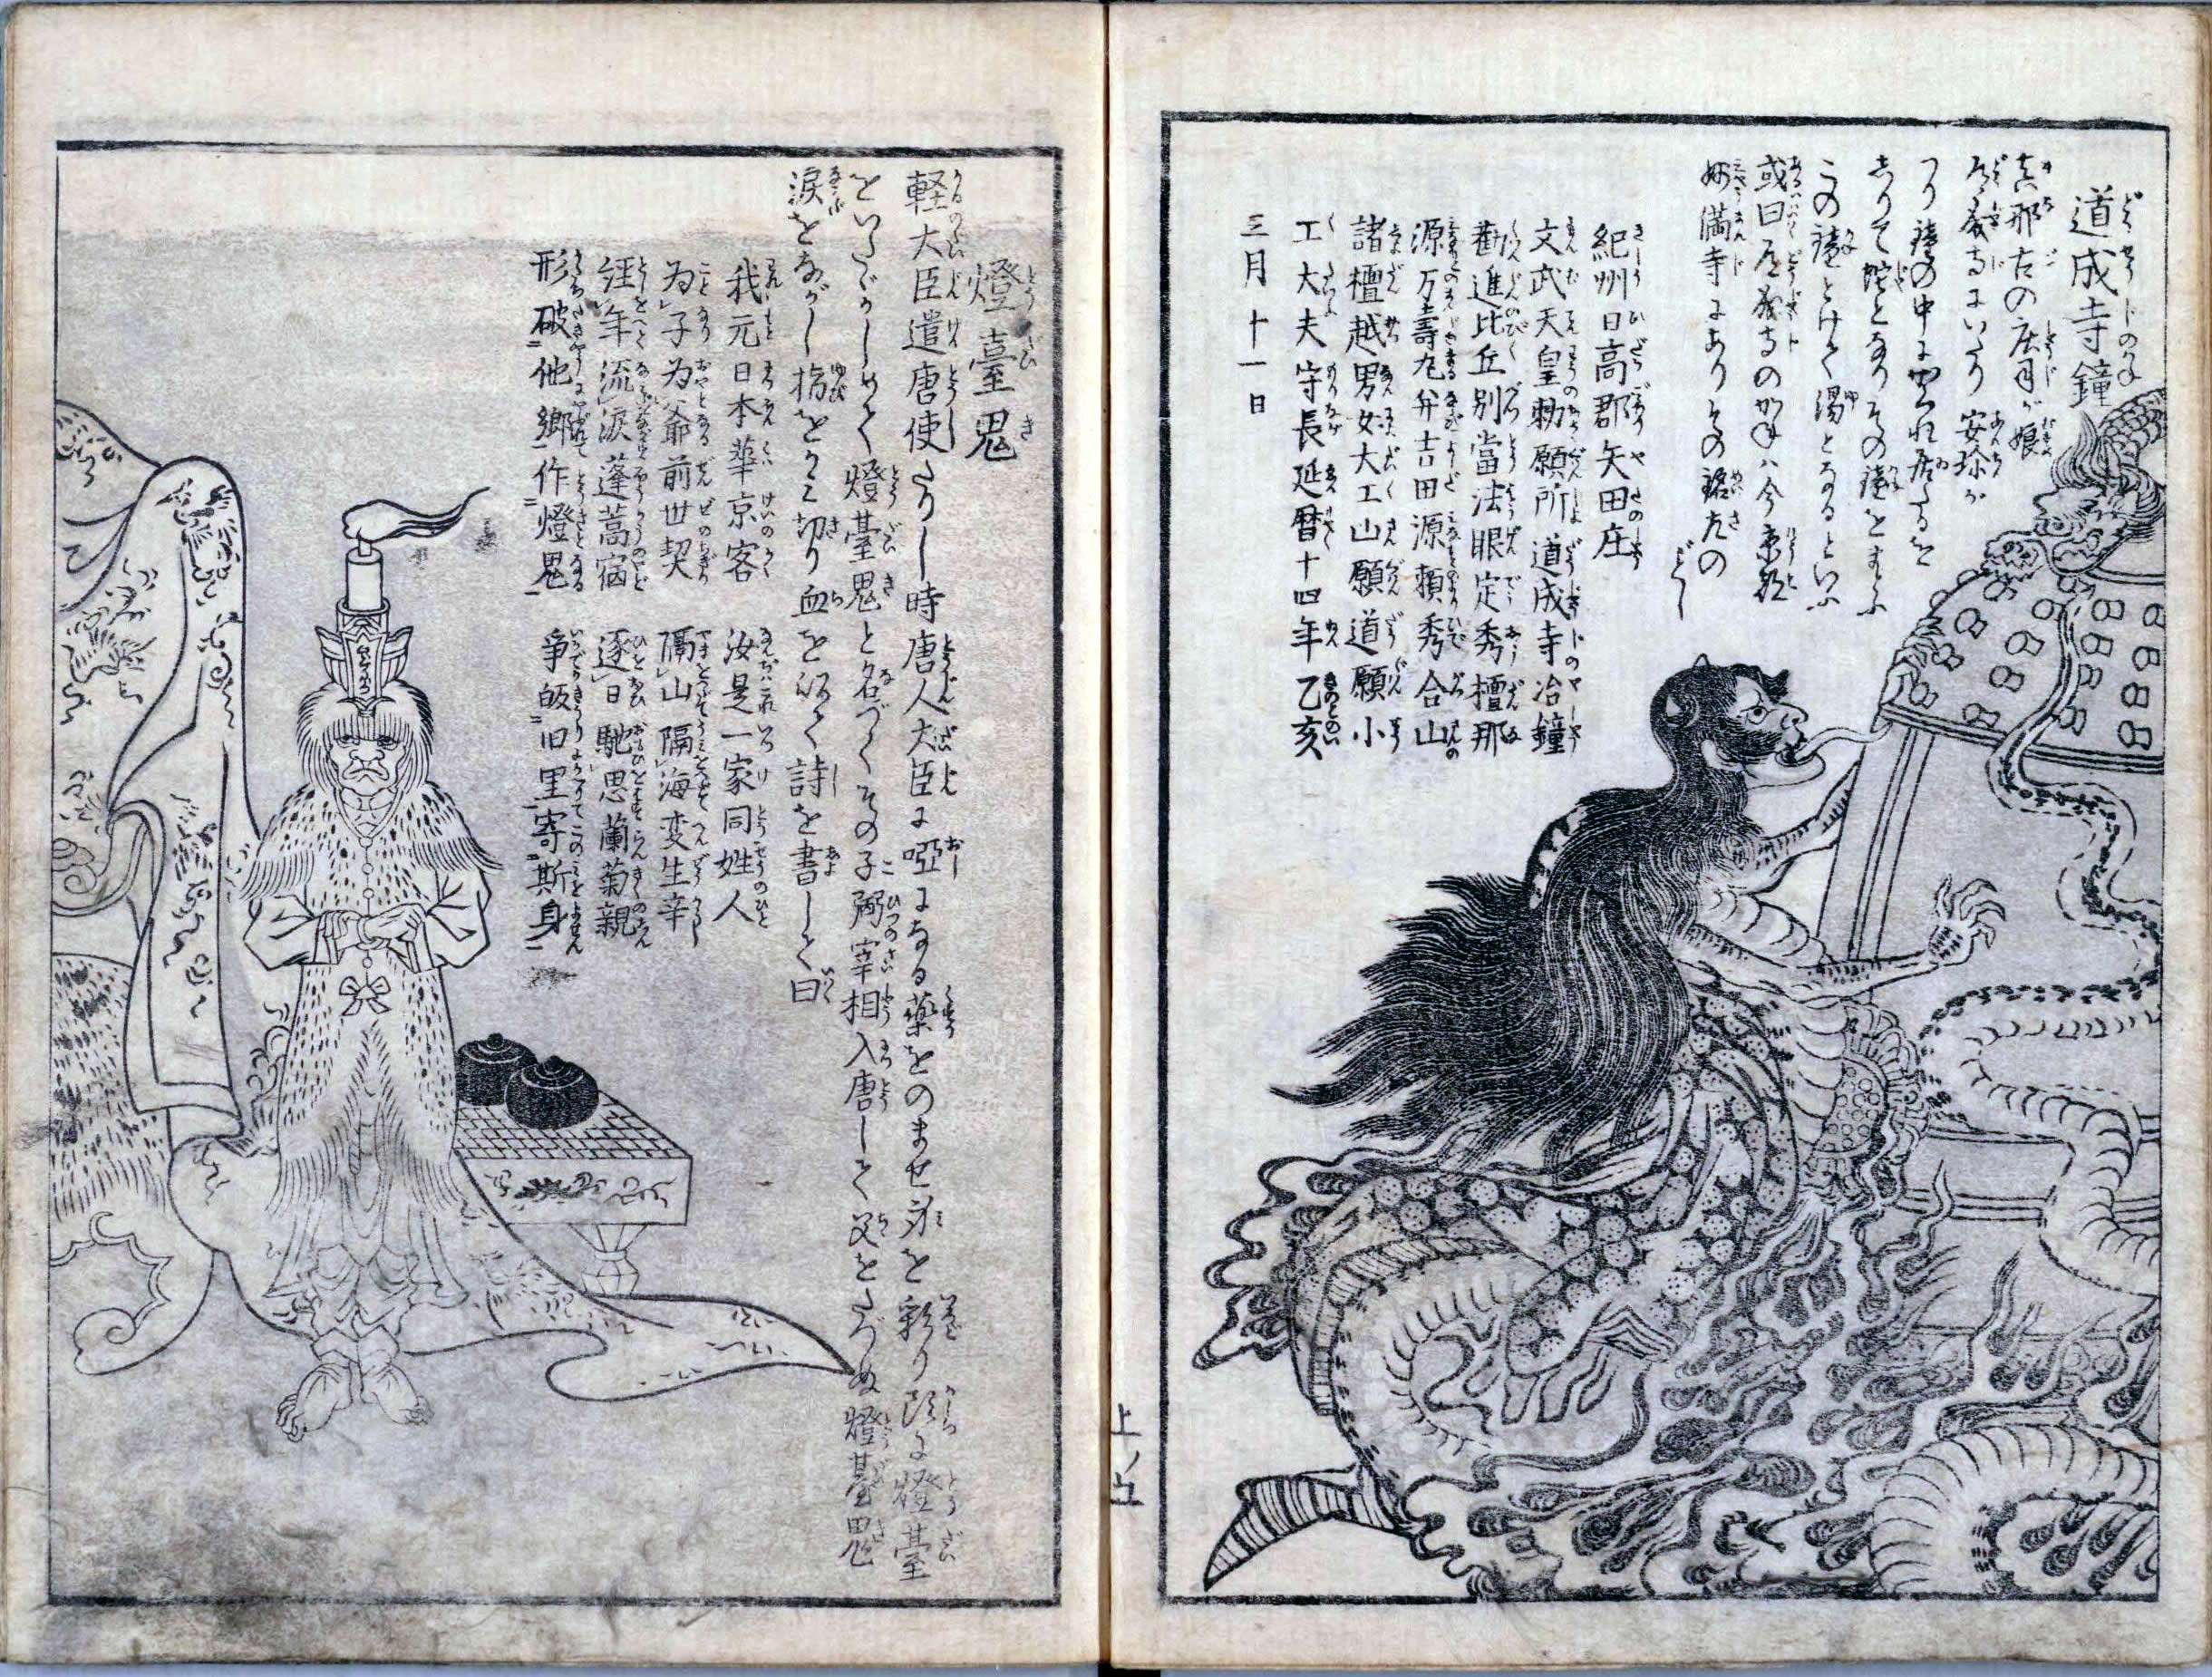 道成寺鐘
真那古の庄司が娘
道成寺にいたり 安珍が
つり鐘の中にかくれ居たるを
しりて蛇となりその鐘をまとふ
この鐘とけて湯となるといふ
或曰道成寺のかねハ今京都
妙満寺にありその銘左の
ごとし
紀州日高郡矢田庄
文武天皇勅願所道成寺冶鐘
勧進比丘別當法眼定秀檀那
源万壽丸并吉田源頼秀合山
諸檀越男女大工山願道願小
工大夫守長延暦十四年乙亥
三月十一日
上ノ九
燈臺鬼
軽大臣遣唐使たりし時唐人大臣に啞になる薬をのませ身を彩り頭に燈臺
をいたゞかしめて燈臺鬼と名づくその子弼宰相入唐して父をたづぬ燈臺鬼
涙をながし指をかミ切り血を以て詩を書して曰
我元日本華京客 汝是一家同姓人
為子為爺前世契 隔山隔海変生辛
経年流涙蓬蒿宿 逐日馳思蘭菊親
形破他郷作燈鬼 爭皈旧里寄斯身